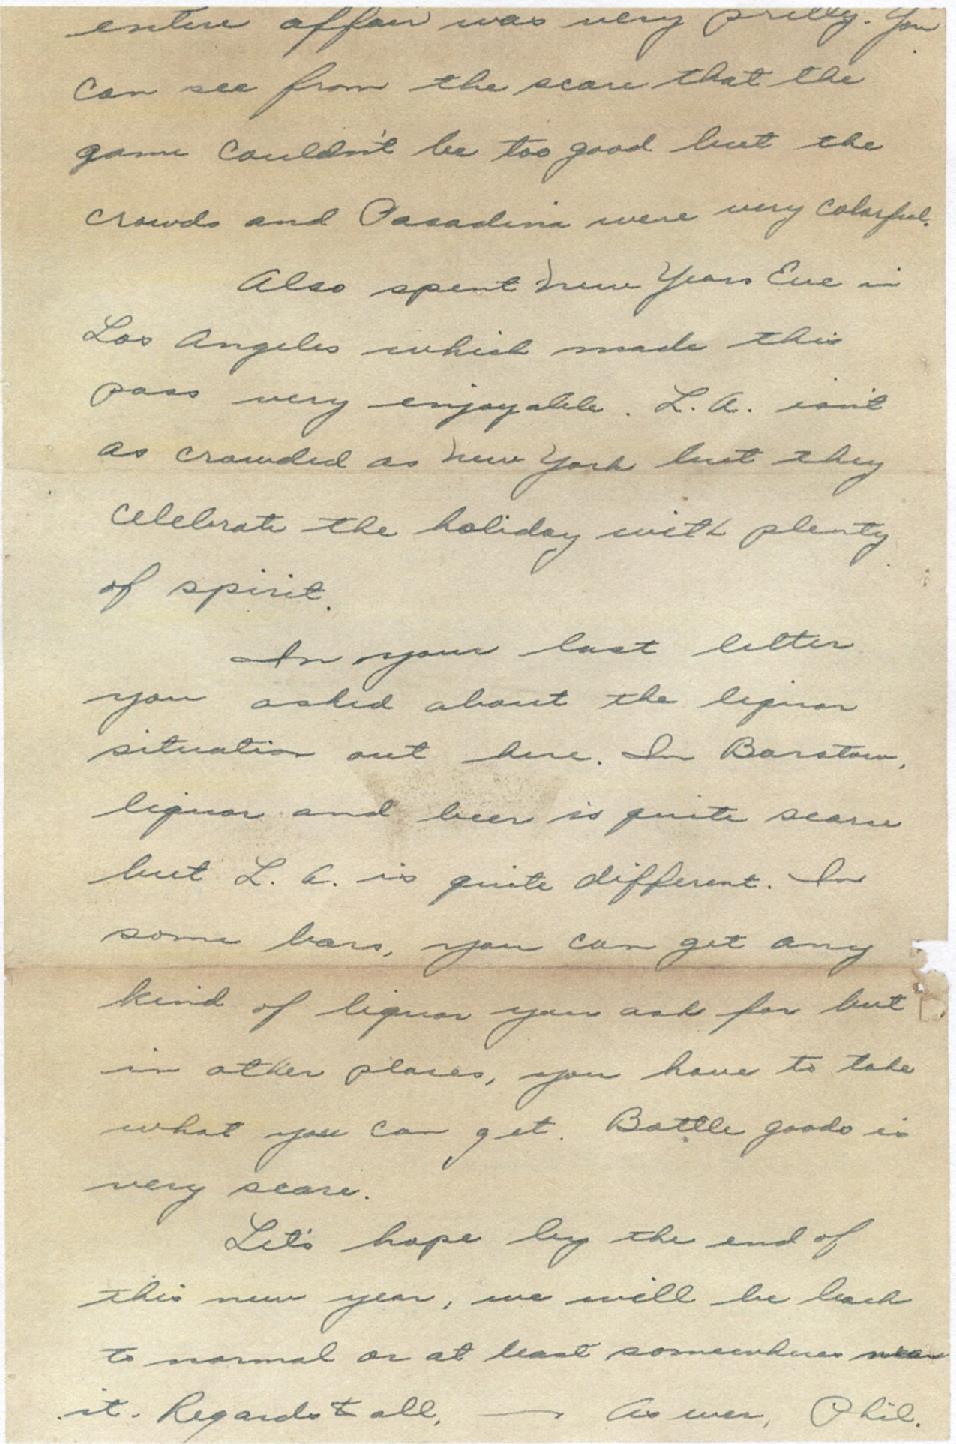 entire affair was very pretty. You
can see from the score that the
game couldn't be too good but the
crowds and Pasadina were very colorful.
Also spent New Years Eve in
Los Angeles which made this
pass very enjoyable. L.A. isn't
as crowded as New York but they
celebrate the holiday with plenty
of spirit.
In your last letter
you asked about the liquor
situation out here. In Barstow,
liquor and beer is quite scarce
but L.A. is quite different. In
some bars, you can get any
kind of liquor you ask for but
in other places, you have to take
what you can get. Bottle goods is
very scarce.
Let's hope by the end of
this new year, we will be back
to normal or at least somewheres near
it. Regards to all, — As ever, Phil.